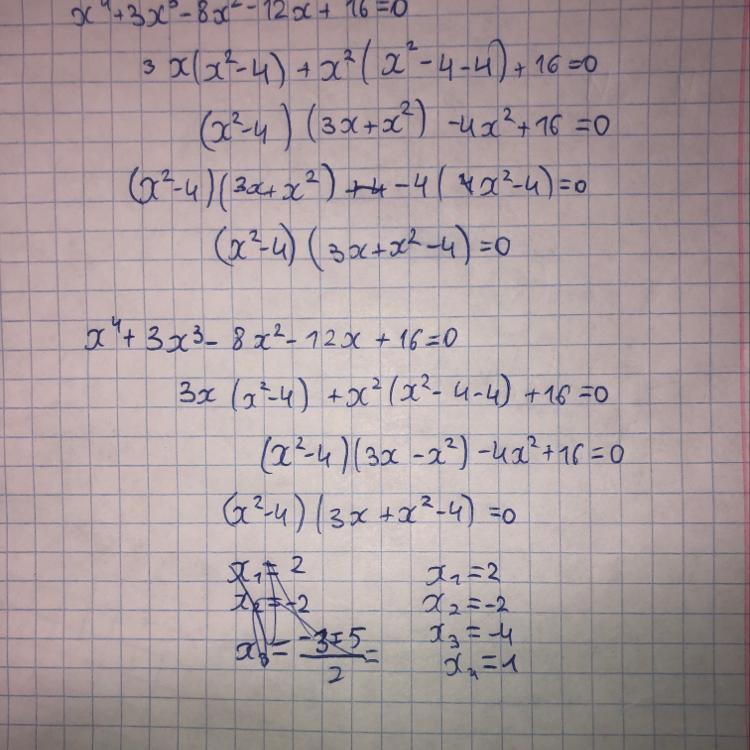 x⁴+3x³-8x²-12x+16=0
3x(x²-4)+x²(x²-4-4)+16=0
(x²-4)(3x+x²)-4x²+16=0
(x²-4)(3x+x²)+4-4(4x²-4)=0
(x²-4)(3x+x²-4)=0
x⁴+3x³-8x²-12x+16=0
3x(x²-4)+x²(x²-4-4)+16=0
(x²-4)(3x-x²)-4x²+16=0
(x²-4)(3x+x²-4)=0
x₁=2 x₁=2
x₂=-2 x₂=-2
x₃=(-3±5)/2= x₃=-4
x₄=1